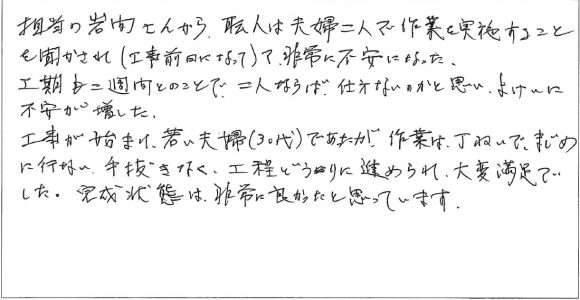 担当の岩間さんから、職人は夫婦二人で作業を実施すること
を聞かされ(工事前日になって)て、非常に不安になった。
工期も二週間とのことで、二人ならば、仕方ないのかと思い、よけいに
不安が増した。
工事が始まり、若い夫婦(30代)であったが、作業は、丁ねいで、まじめ
に行ない、手抜きなく、工程どうりに進められ、大変満足で
した。完成状態は、非常に良かったと思っています。